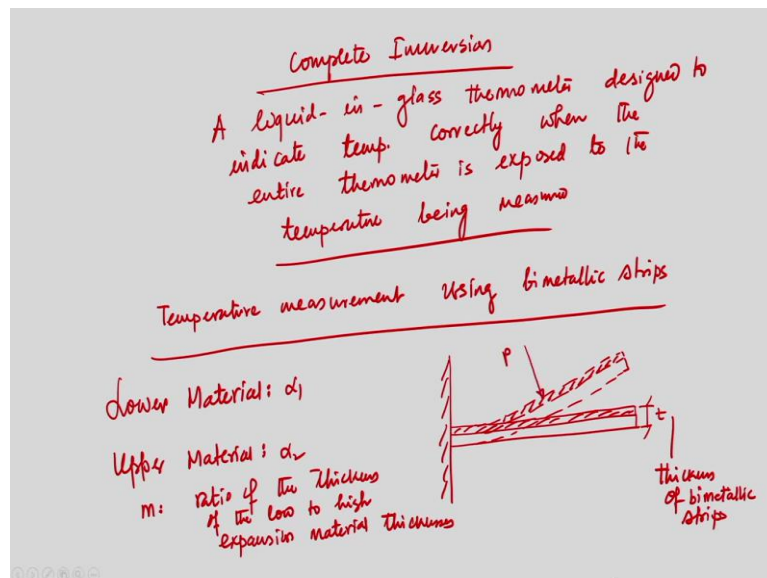 Complete Immersion
A liquid-in-glass thermometer designed to
indicate temp. correctly when the
entire thermometer is exposed to the
temperature being measured
Temperature measurement using bimetallic strips
Lower Material: α1
Upper Material: α2
m: ratio of the thickness
of the low to high
expansion material thicknesses
ρ
t
thickness
of bimetallic
strips